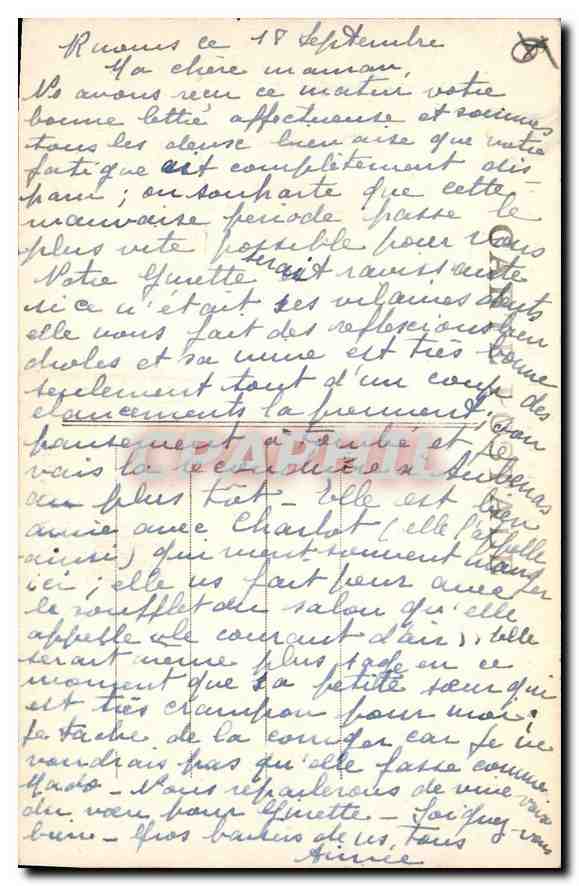 Ruoms ce 18 Septembre
Ma chère maman,
Ns avons reçu ce matin votre
bonne lettre affectueuse et sommes
tous les deux bien aise que votre
fatigue ait complètement dis
paru ; on souhaite que cette
mauvaise période passe le
plus vite possible pour vous
Notre Ginette serait ravissante
si ce n'était ses vilaines dents
elle nous fait des reflexions bien
droles et sa mine est très bonne
seulement tout d'un coup des
élancements la prennent, son
pansement à tombé et je
vais la reconduire à Aubenas
au plus tôt - Elle est bien
amie avec Charlot (elle l'appelle
ainsi) qui vient souvent manger
ici ; elle ns fait peur avec
le soufflet du salon qu'elle
appelle "le courant d'air". Elle
serait même plus sage en ce
moment que sa petite sœur qui
est très crampon pour moi ;
je tache de la corriger car je ne
voudrais pas qu'elle fasse comme
Mado - Nous reparlerons de vive voix
du vœu pour Ginette - Soignez-vous
bien - Gros baisers de ns tous
Aimée
CARTE POSTALE
CPAPHIL